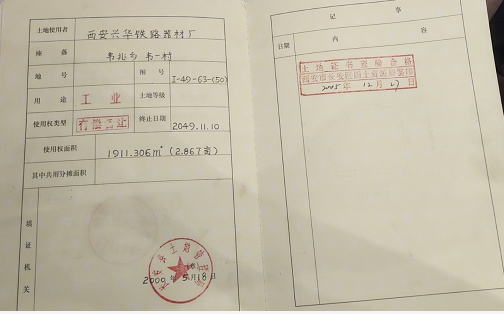 土地使用者 西安兴华铁路器材厂
座落 韦北乡 韦一村
地号 图号 I-49-63-(50)
用途 工业 土地等级
使用权类型 终止日期 2049.11.10
使用权面积 1911.306m² (2.867亩)
其中共用分摊面积
填证机关
2000年5月18日
记事
日期 内容
土地证书查验合格
2005年12月27日